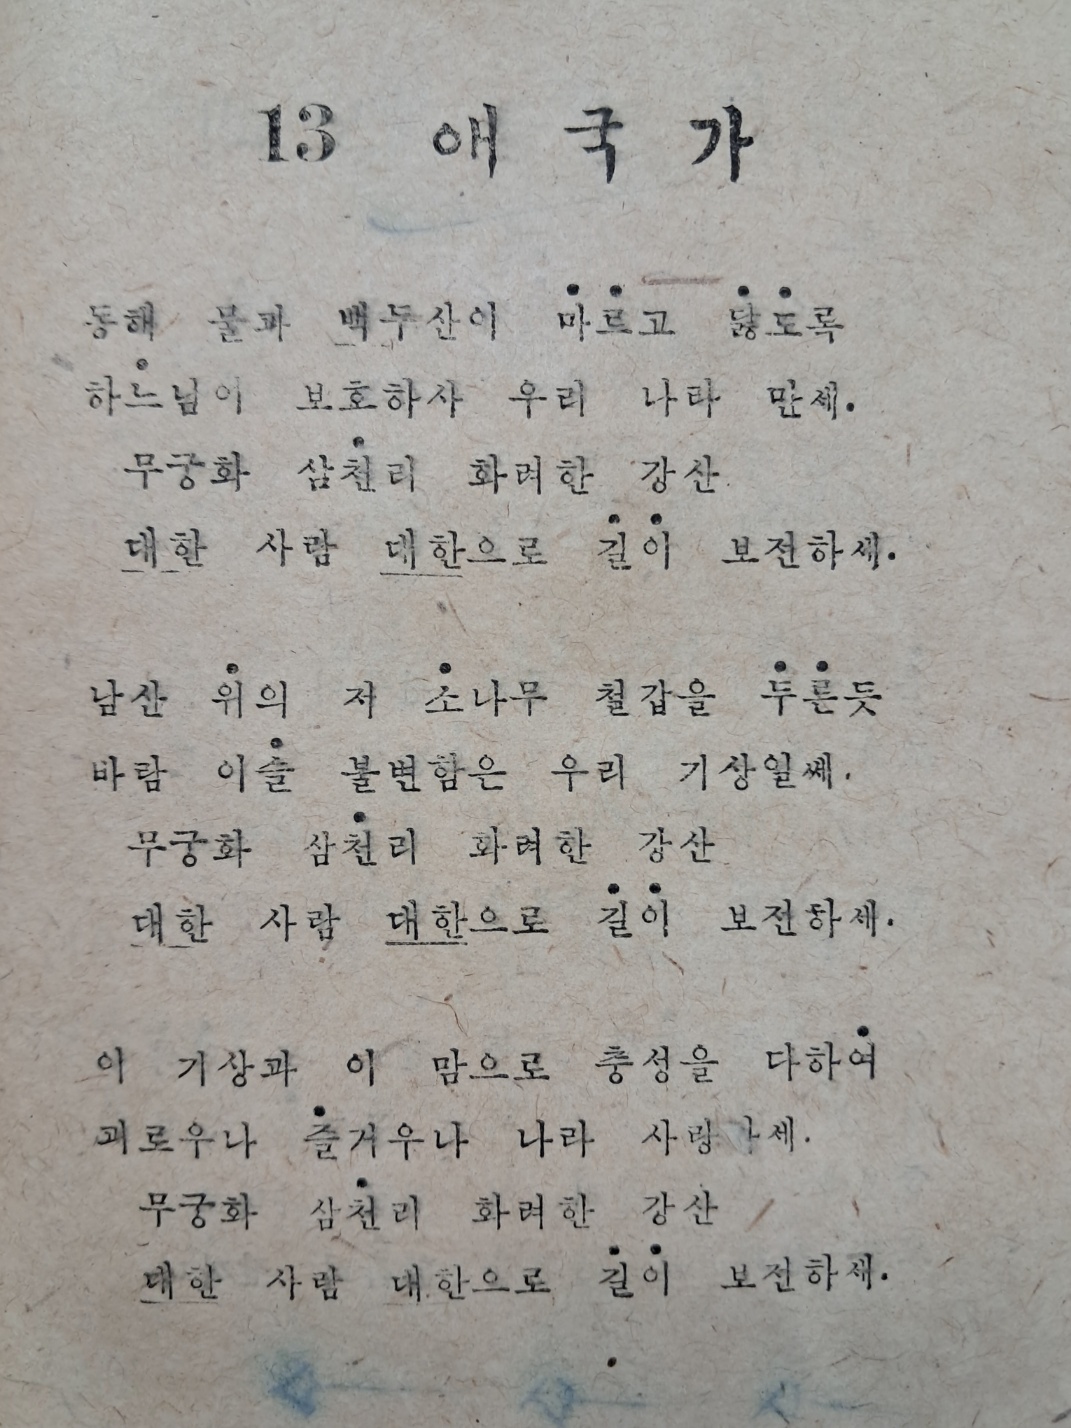 13 애국가
동해 물과 백두산이 마르고 닳도록
하느님이 보호하사 우리 나라 만세.
무궁화 삼천리 화려한 강산
대한 사람 대한으로 길이 보전하세.
남산 위의 저 소나무 철갑을 두른듯
바람 이슬 불변함은 우리 기상일쎄.
무궁화 삼천리 화려한 강산
대한 사람 대한으로 길이 보전하세.
이 기상과 이 맘으로 충성을 다하여
괴로우나 즐거우나 나라
무궁화 삼천리 화려한 강산
대한 사람 대한으로 길이 보전하세.